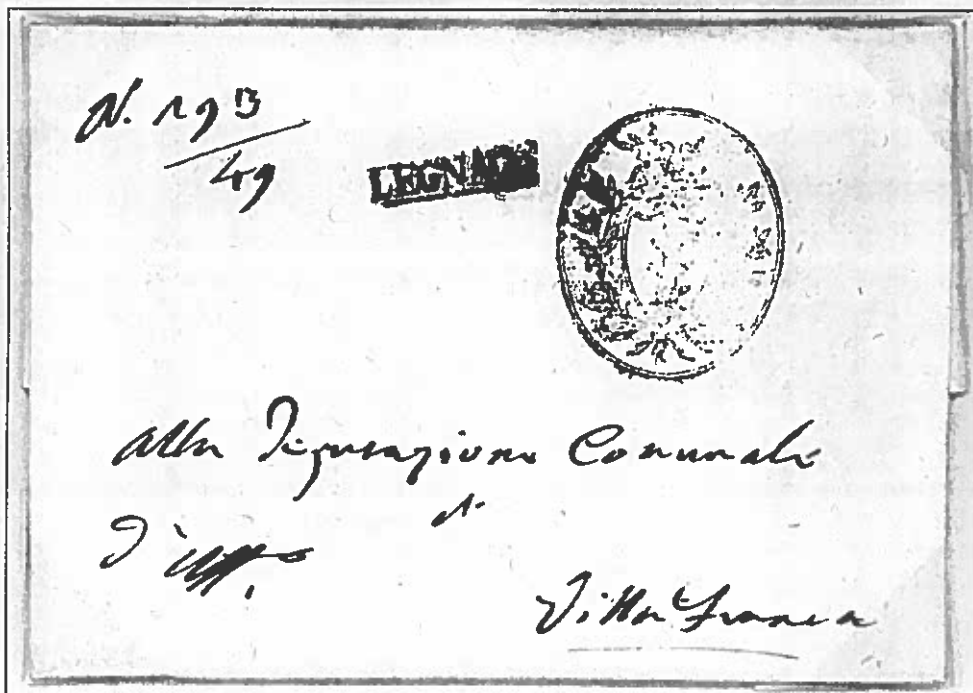 N. 193
49
LEGNAGO
Alla Deputazione Comunale
di
D'Uff.
Villa Franca